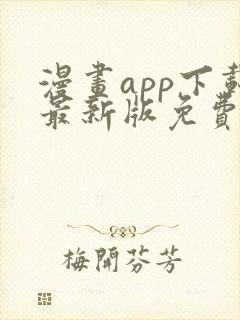 漫畫app下載
最新版免費
梅開芬芳